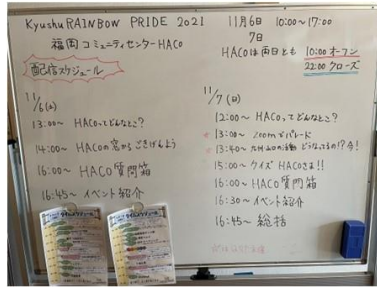 Kyushu RAINBOW PRIDE 2021
11月6日 10:00~17:00
7日
福岡コミュニティセンターHACO
HACOは両日とも 10:00 オープン
22:00 クローズ
配信スケジュール
11/6(土)
13:00~ HACOってどんなとこ?
14:00~ HACOの窓からごきげんよう
16:00~ HACO質問箱
16:45~ イベント紹介
11/7(日)
12:00~ HACOってどんなとこ?
13:00~ Zoomでパレード
13:40~ 九州・山の活動 どうなってるの!?今!
15:00~ クイズ HACOさま!!
16:00~ HACO質問箱
16:30~ イベント紹介
16:45~ 総括